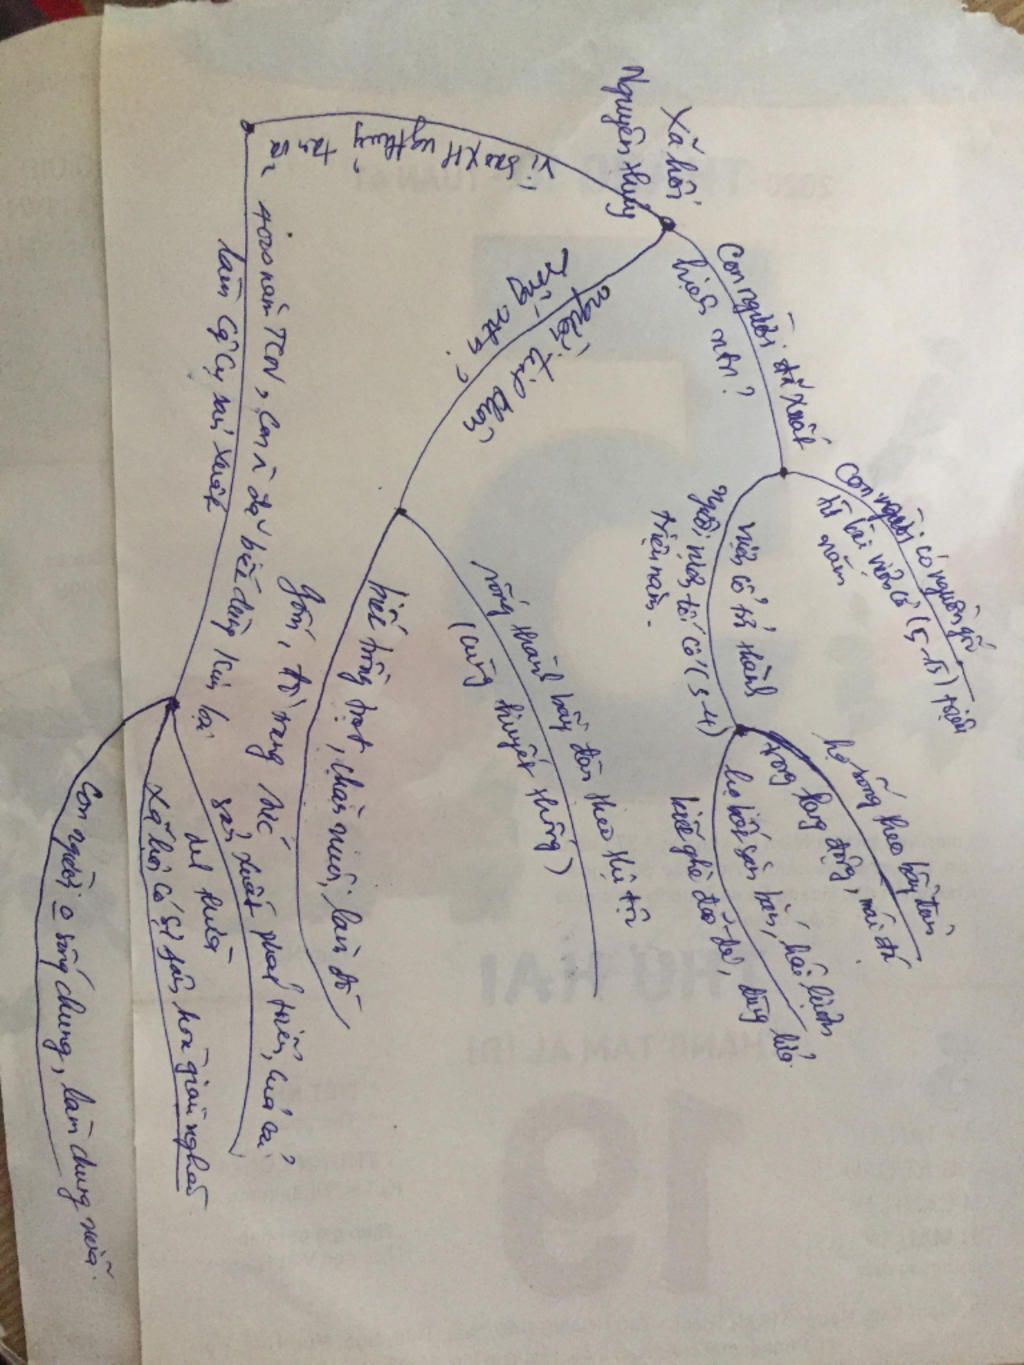 Xã hội
Nguyên thủy
Con người đã xuất
hiện ntn?
Con người có nguồn gốc
từ loài vượn cổ (5-15) triệu
năm
vượn cổ trở thành
người tối cổ (3-4)
triệu năm.
họ sống theo bầy đàn
trong hang động, mái đá
họ biết săn bắn, hái lượm
biết ghè đẽo đá, dùng lửa.
người tinh khôn
sống ntn?
sống thành bầy đàn theo thị tộc
(cùng huyết thống)
biết trồng trọt, chăn nuôi, làm đồ
gốm, đồ trang sức
Vì sao XH ng thủy
tan rã?
4000 năm TCN, con n đã biết dùng kim loại
làm công cụ sản xuất
sản xuất phát triển, của cải
dư thừa
Xã hội có sự phân hóa giàu nghèo
Con người o sống chung, làm chung nữa.
THỨ HAI
THÁNG TÁM ÂL (Đ)
19